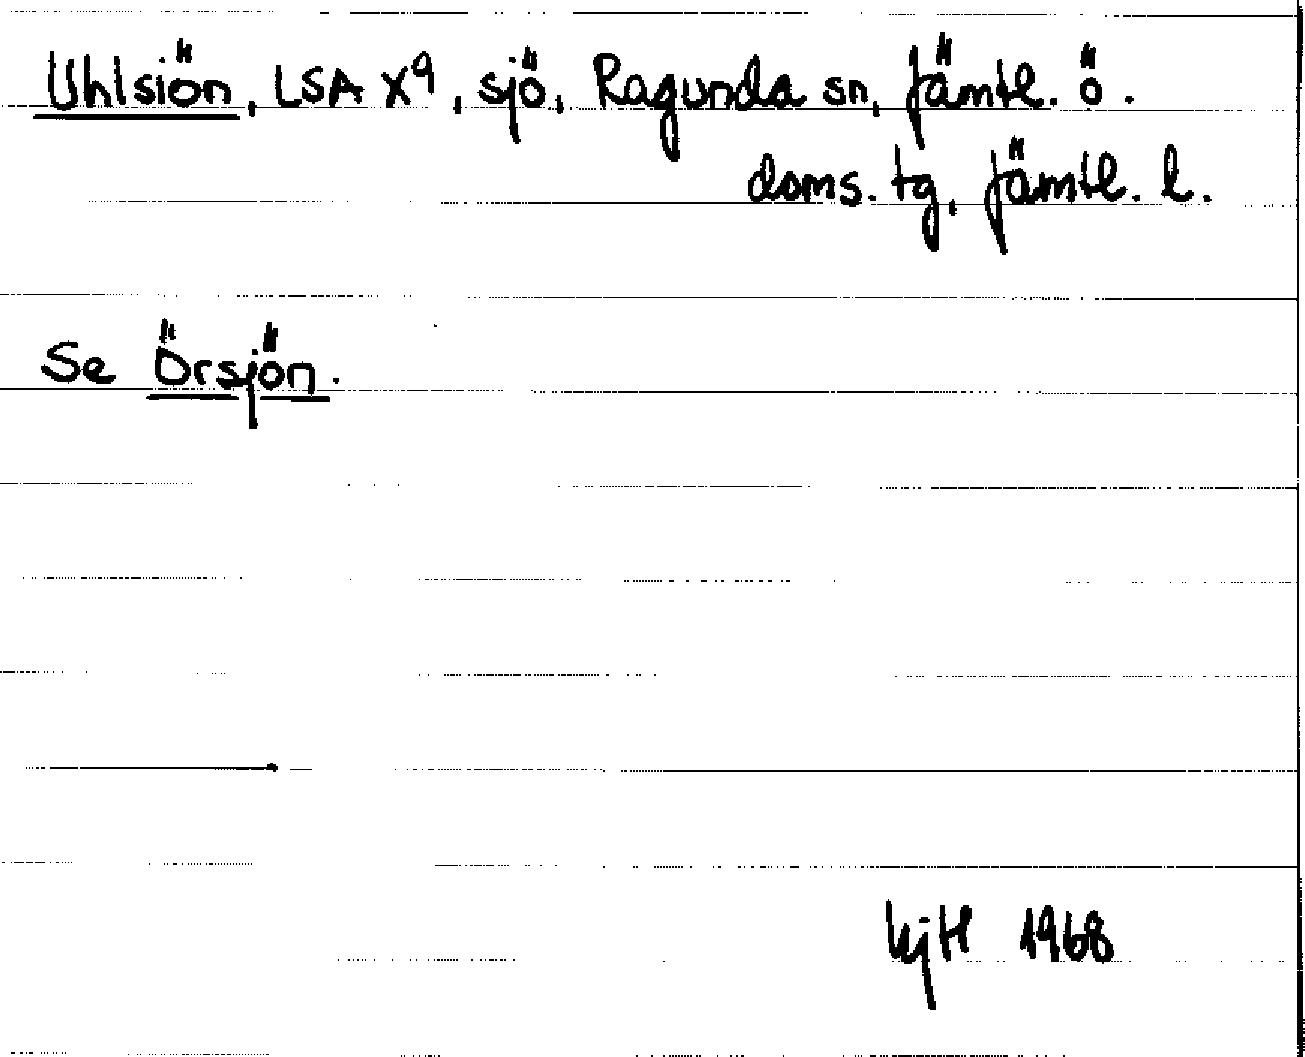 Uhlsiön, LSA X9, sjö, Ragunda sn, Jämtl. ö.
doms. tg, Jämtl. l.
Se Örsjön.
1968